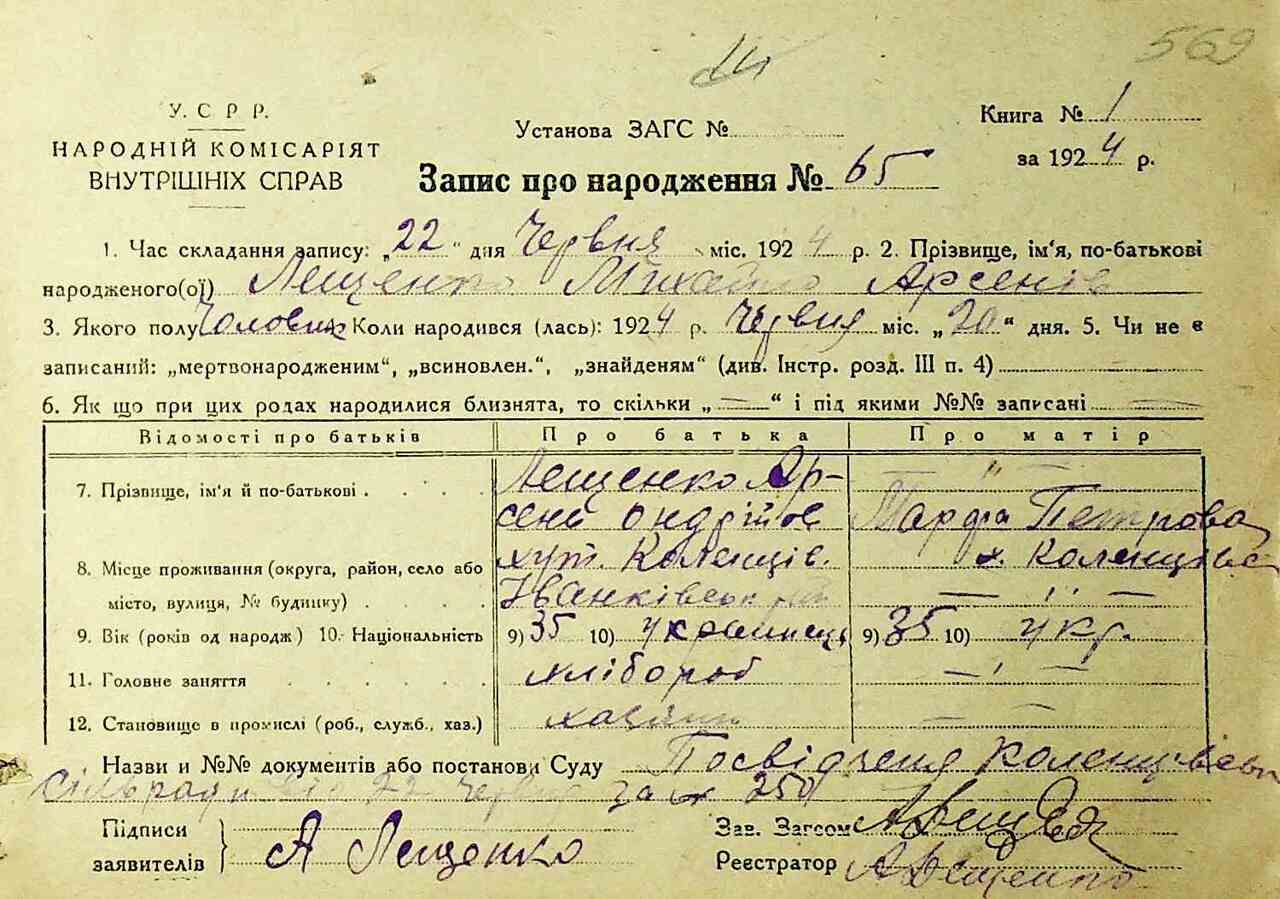 569
У. С Р Р.
НАРОДНІЙ КОМІСАРІЯТ
ВНУТРІШНІХ СПРАВ
Установа ЗАГС №
Книга № 1
за 1924 р.
Запис про народження № 65
1. Час складання запису: „22" дня Червня міс. 1924 р. 2. Прізвище, ім'я, по-батькові
народженого(ої) Лещенко Михайло Арсенів
3. Якого полу Чоловік 4. Коли народився (лась): 1924 р. Червня міс. „20" дня. 5. Чи не є
записаний: „мертвонародженим", „всиновлен.", „знайденям" (див. Інстр. розд. III п. 4)
6. Як що при цих родах народилися близнята, то скільки „ — " і під якими №№ записані —
Відомості про батьків Про батька Про матір
7. Прізвище, ім'я й по-батькові . . . . Лещенко Ар- — " —
сени Ондрійов Марфа Петрова
8. Місце проживання (округа, район, село або хут. Коленців. х. Коленців
місто, вулиця, № будинку) . . . . Іванківськ — " —
9. Вік (років од народж) 10. Національність 9) 35 10) Українець 9) 35 10) укр.
11. Головне заняття . . . . . . хлібороб — " —
12. Становище в промислі (роб., служб., хаз.) хазяин — —
Назви и №№ документів або постанови Суду Посвідченя Коленцівськ
сільради від 22 Черв за № 250
Підписи
заявителів } А Лещенко
Зав. Загсом
Реєстратор